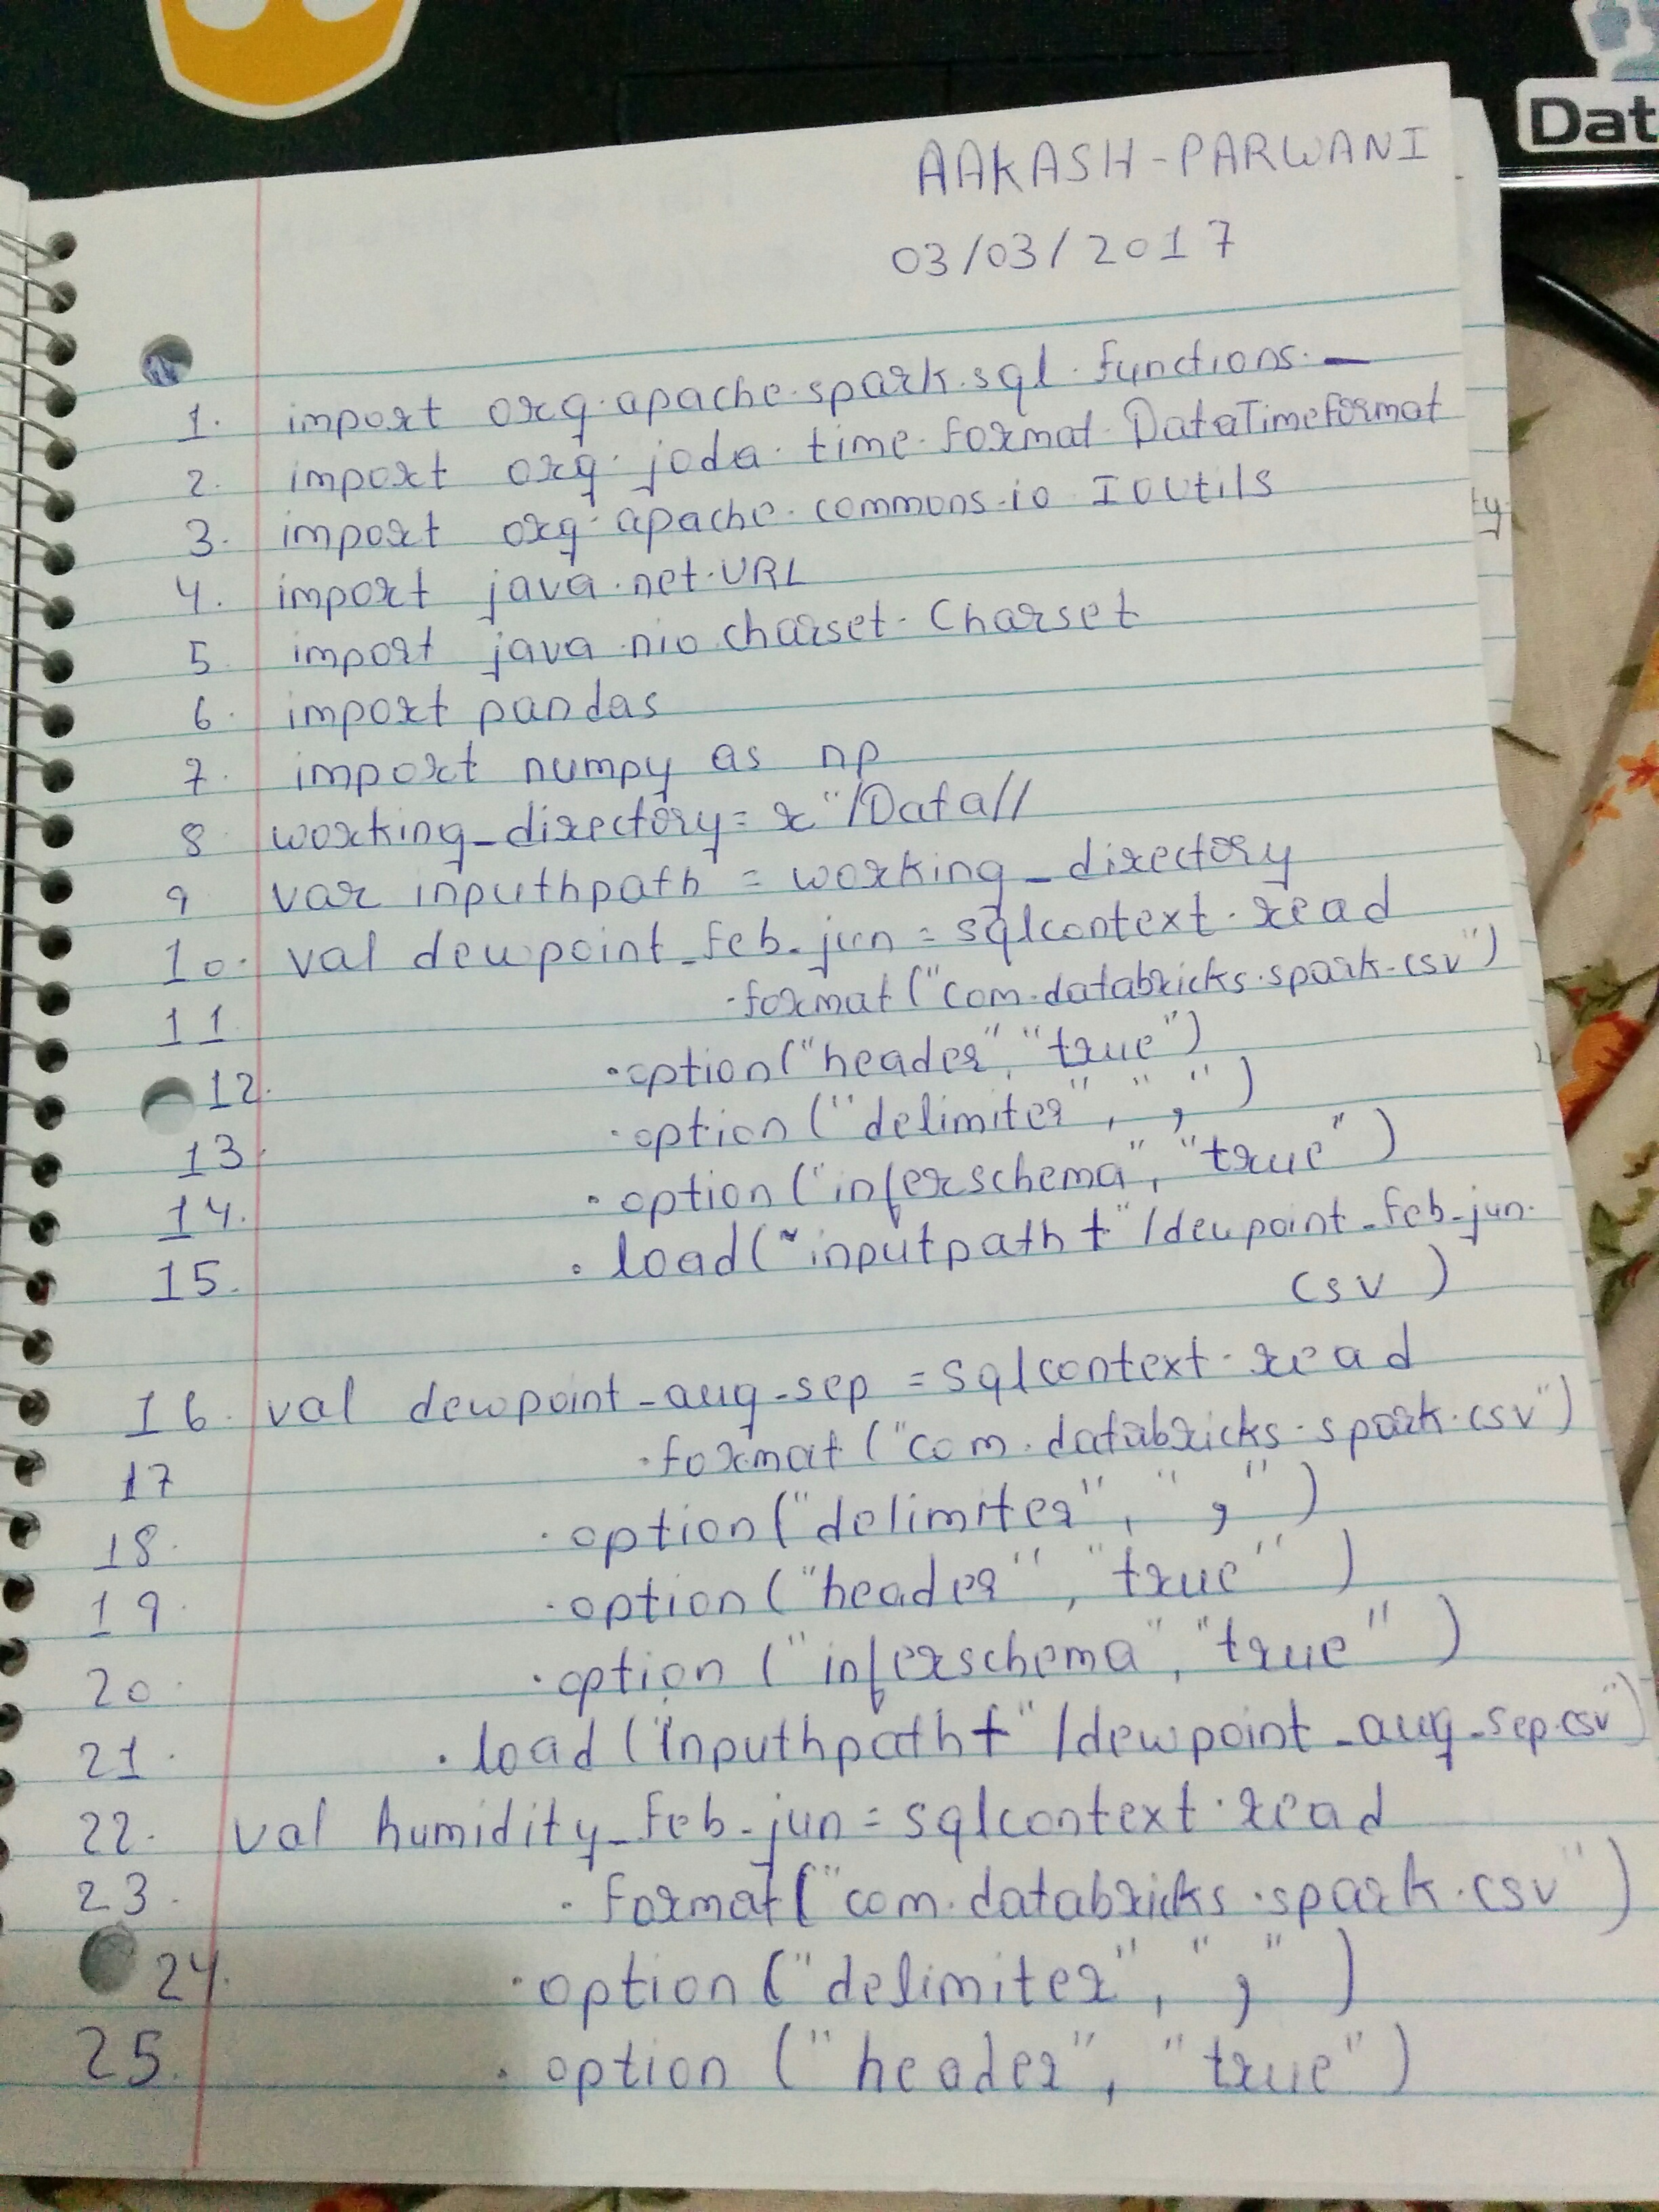 Dat
AAKASH-PARWANI
03/03/2017
1. import org.apache.spark.sql.functions._
2. import org.joda.time.format.DataTimeformat
3. import org.apache.commons.io IOUtils
4. import java.net.URL
5 import java.nio charset.Charset
6. import pandas
7. import numpy as np
8 working_directory= r"/Data//
9 var inputhpath = working_directory
10. val dewpoint_feb_jun = sqlcontext.read
11 .format("com.databricks.spark.csv")
12. .option("header", "true")
13. .option("delimiter", ",")
14. .option("inferschema", "true")
15. .load("inputpath+"/dewpoint_feb_jun.
csv)
16. val dewpoint_aug_sep = sqlcontext.read
17 .format("com.databricks.spark.csv")
18. .option("delimiter", ",")
19. .option("header", "true")
20. .option("inferschema", "true")
21. .load("inputhpath+"/dewpoint_aug_sep.csv")
22. val humidity_feb_jun= sqlcontext.read
23. .format("com.databricks.spark.csv")
24. .option("delimiter", ",")
25. .option("header", "true")